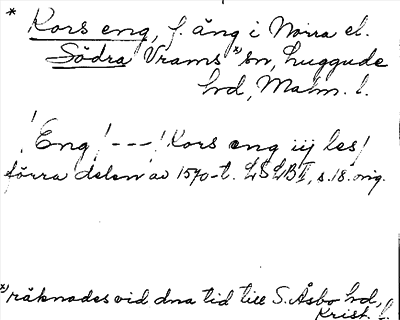 * Kors eng, f. äng i Norra el.
Södra Vrams *) sn, Luggude
hd, Malm. l.
! Eng / --- ! Kors eng iij les /
förra delen av 1570-t. LSLB II, s. 18. orig.
*) räknades vid dna tid till S. Åsbo hd,
Krist. l.